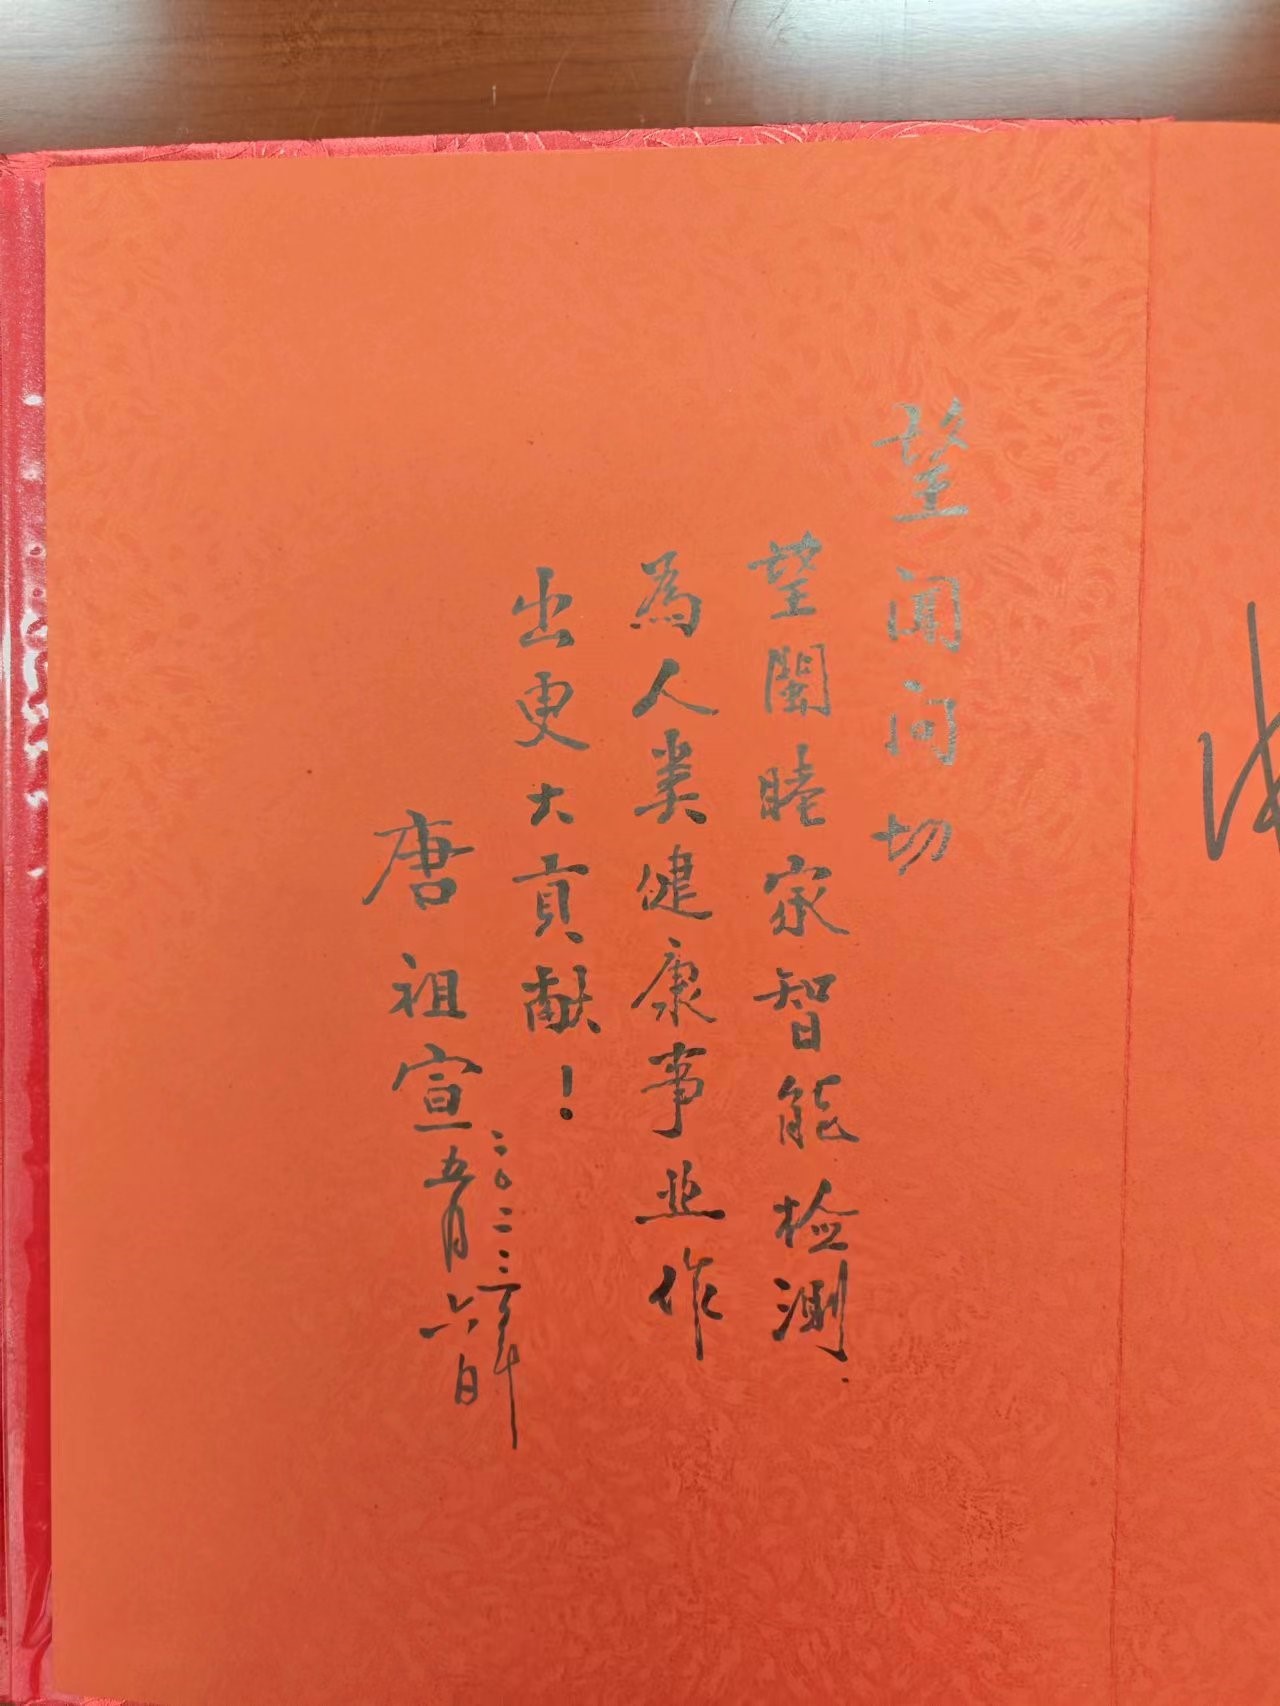 望闻问切
望聞睦家智能检测
為人类健康事业作
出更大貢献！
唐祖宣
二〇二三年
五月六日